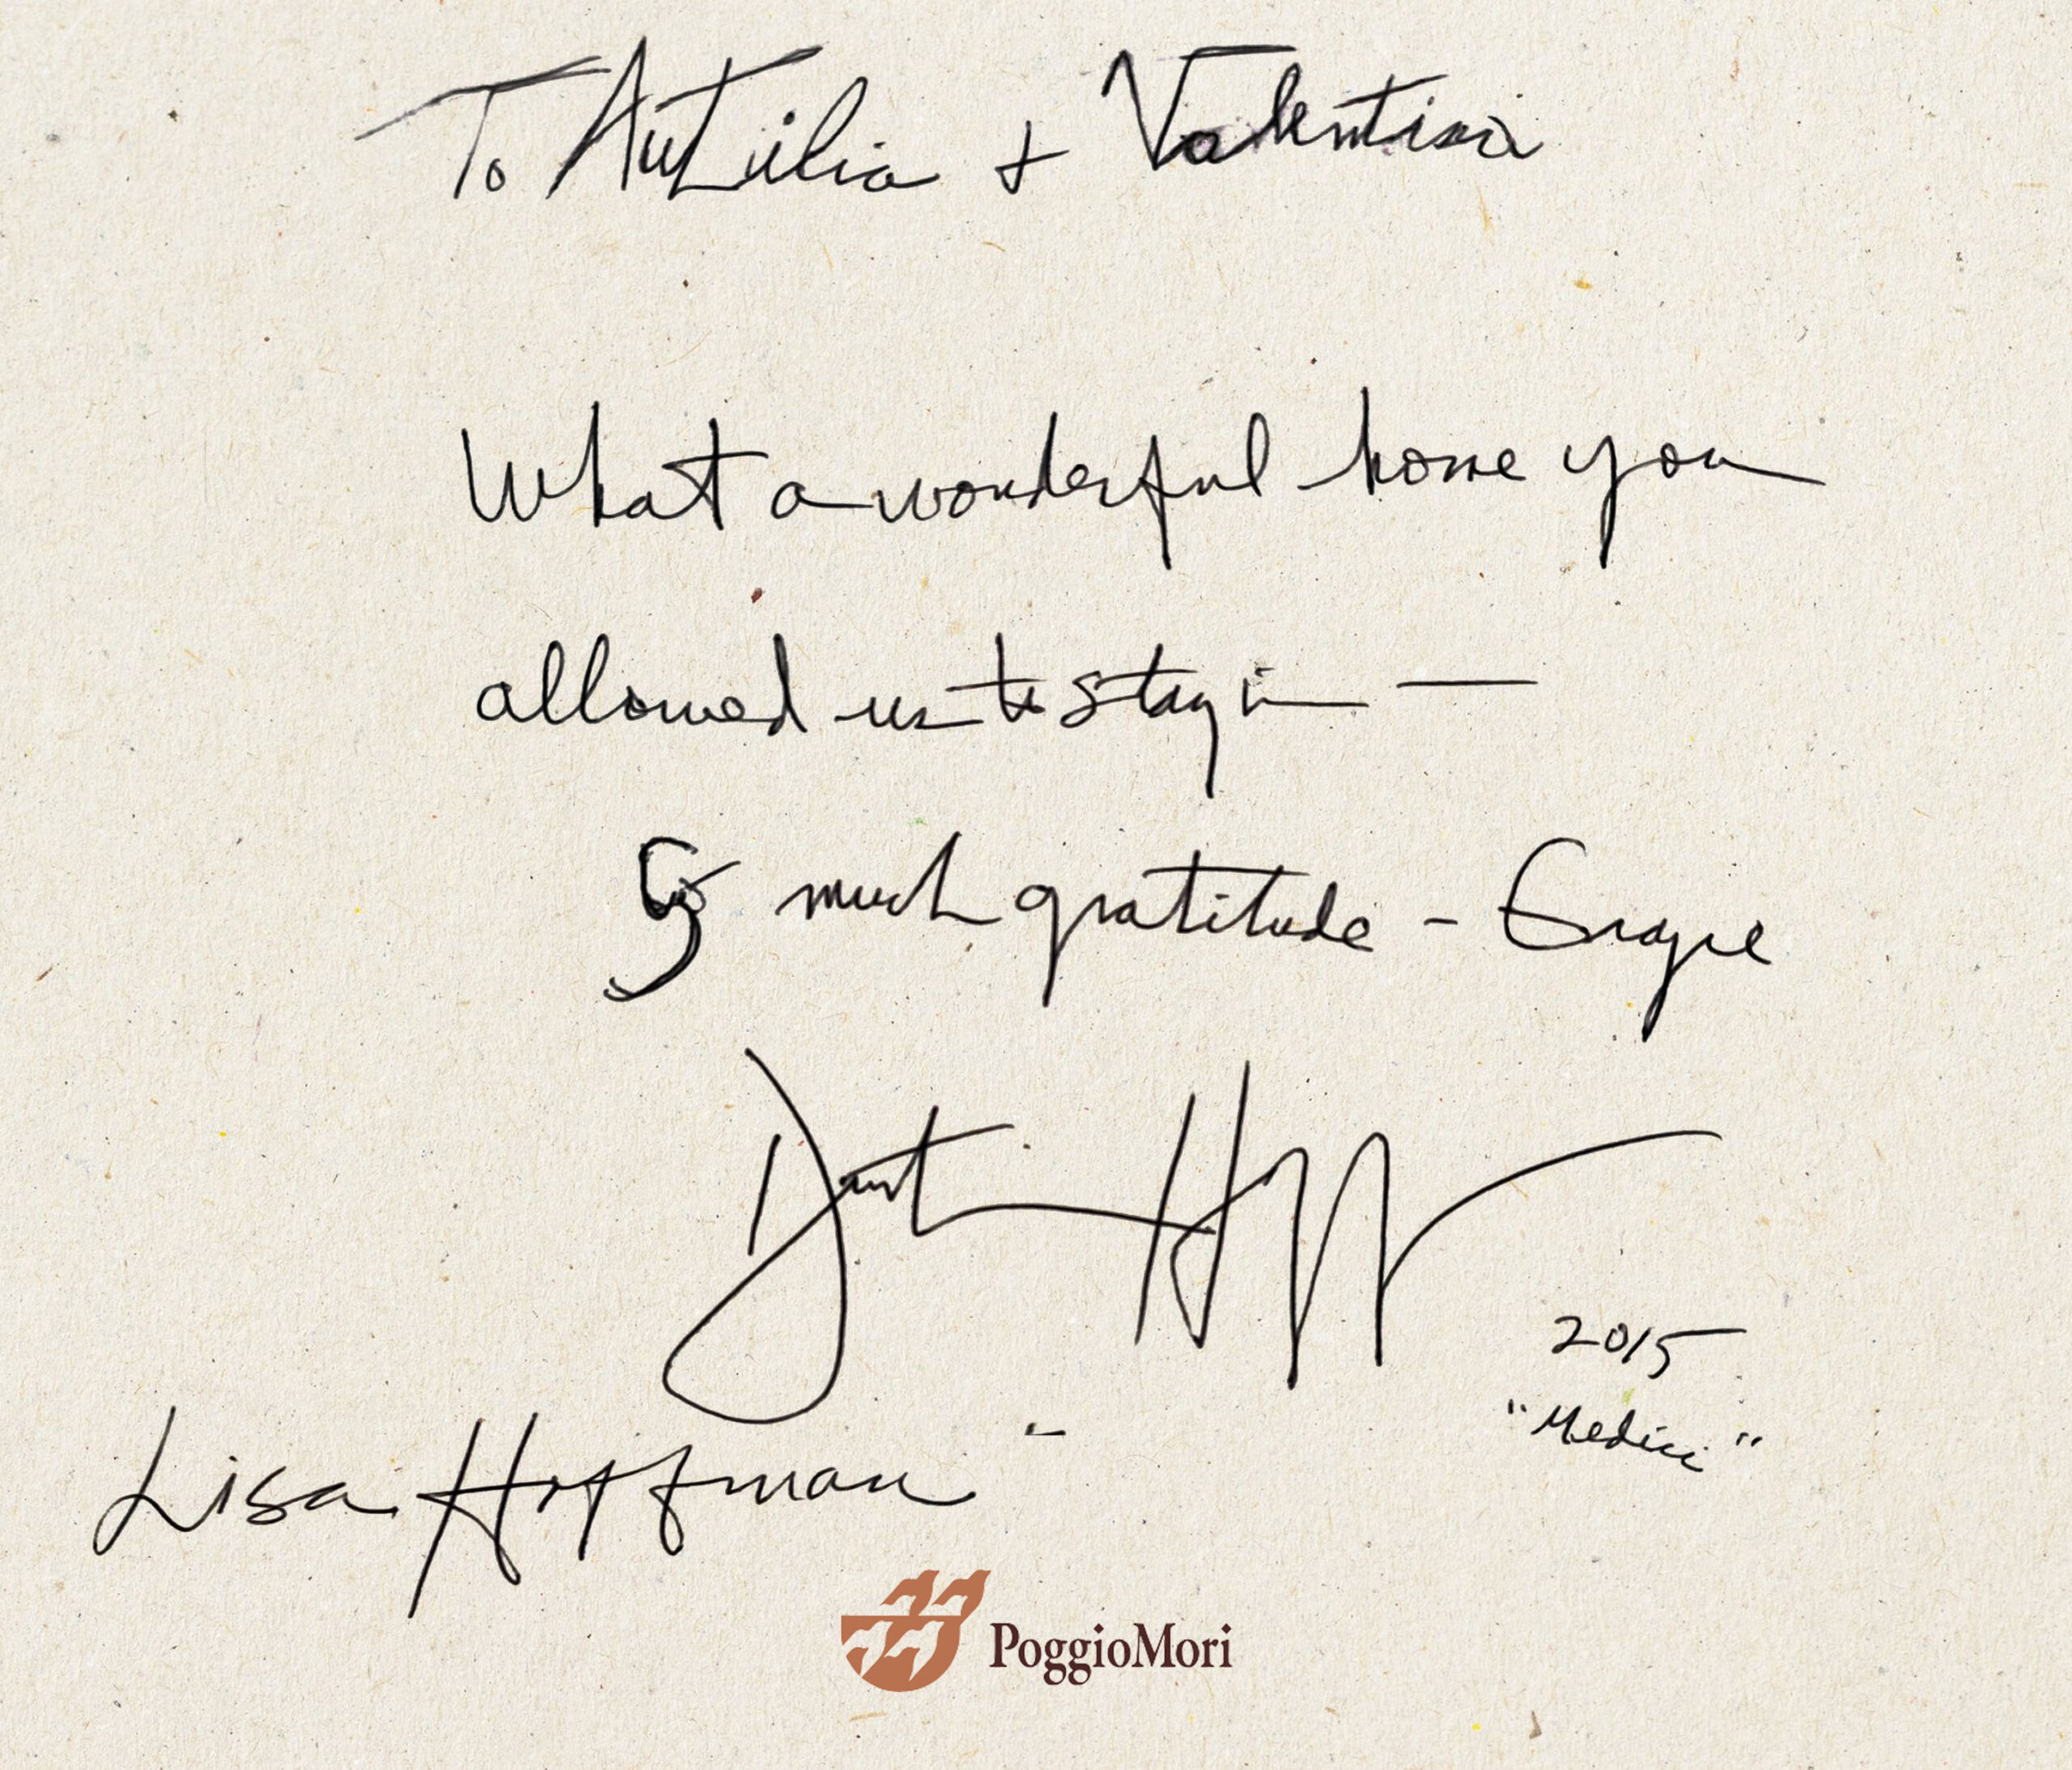 To Autilia + Valentina
What a wonderful home you
allowed us to stay in —
So much gratitude - Grazie
Dustin Hoffman
2015
"Medici"
Lisa Hoffman -
PoggioMori